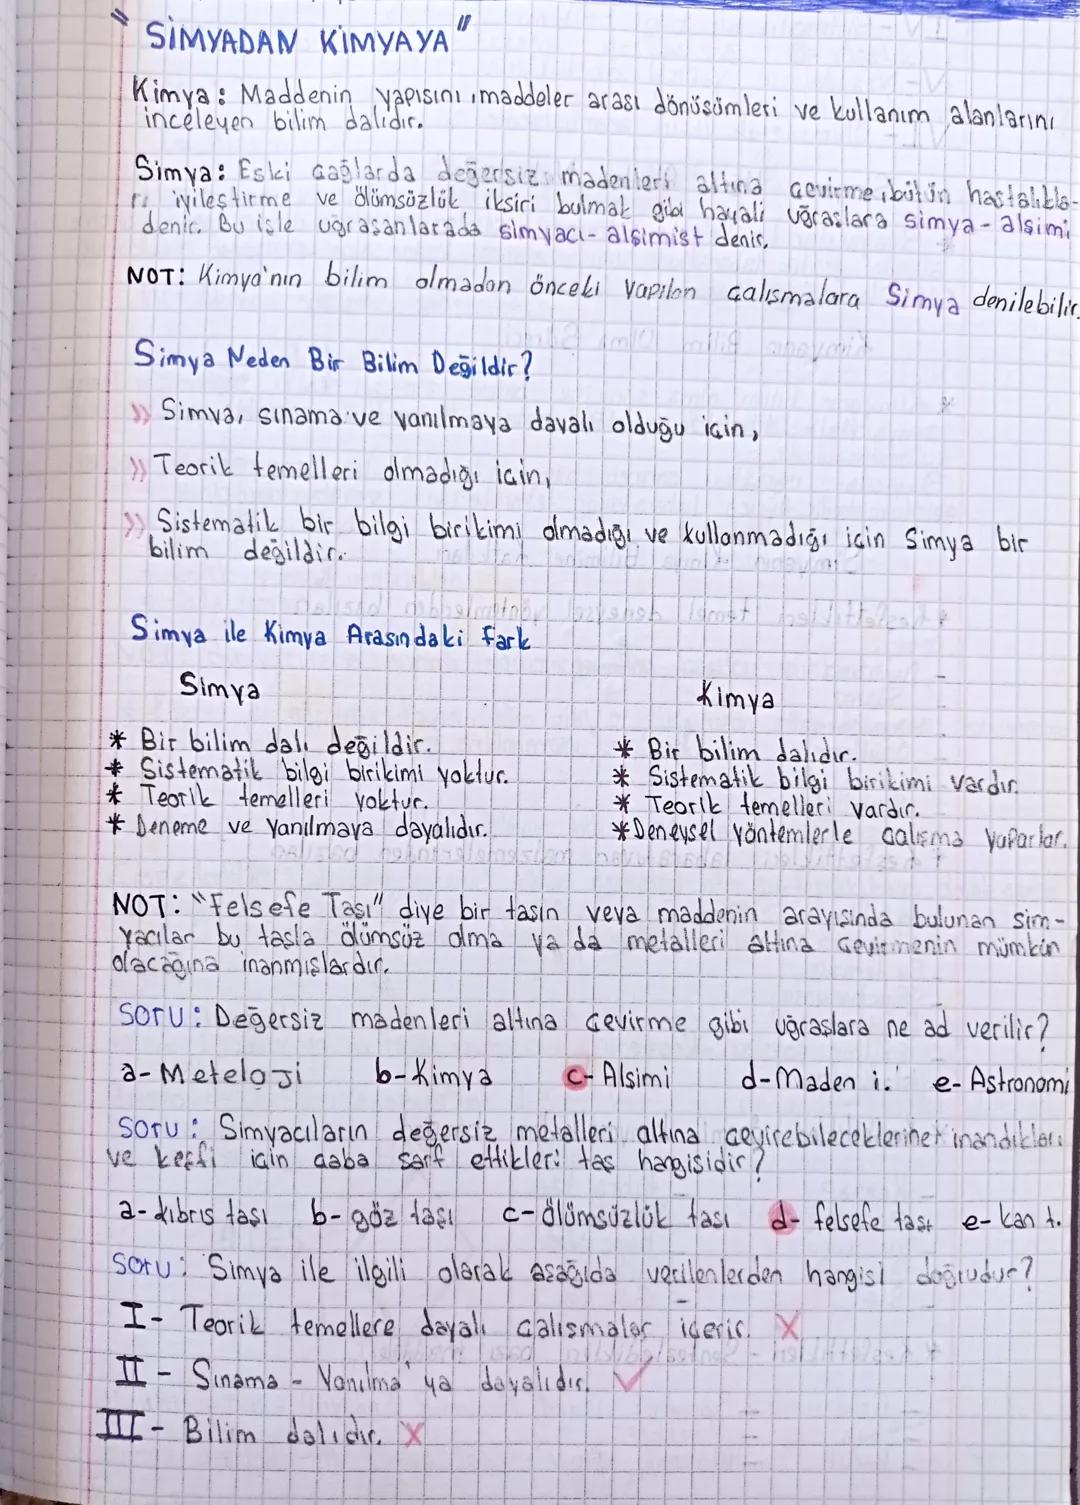 " SİMYADAN KİMYAYA "
Kimya: Maddenin yapısını, maddeler arası dönüşümleri ve kullanım alanlarını
inceleyen bilim dalıdır.
Simya: Eski çağlarda değersiz madenleri altına çevirme, bütün hastalıkla-
rı iyileştirme ve ölümsüzlük iksiri bulmak gibi hayali uğraşlara simya-alşimi
denir. Bu işle uğraşanlarada simyacı-alşimist denir.
NOT: Kimya'nın bilim olmadan önceki yapılan çalışmalara Simya denilebilir.
Simya Neden Bir Bilim Değildir?
>> Simya, sınama ve yanılmaya dayalı olduğu için,
>> Teorik temelleri olmadığı için,
>> Sistematik bir bilgi birikimi olmadığı ve kullanmadığı için Simya bir
bilim değildir.
Simya ile Kimya Arasındaki Fark
Simya
* Bir bilim dalı değildir.
* Sistematik bilgi birikimi yoktur.
* Teorik temelleri yoktur.
* Deneme ve yanılmaya dayalıdır.
Kimya
* Bir bilim dalıdır.
* Sistematik bilgi birikimi vardır.
* Teorik temelleri vardır.
* Deneysel yöntemlerle çalışma yaparlar.
NOT: "Felsefe Taşı" diye bir taşın veya maddenin arayışında bulunan sim-
yacılar bu taşla ölümsüz olma ya da metalleri altına çevirmenin mümkün
olacağına inanmışlardır.
Soru: Değersiz madenleri altına çevirme gibi uğraşlara ne ad verilir?
a- Meteloji b- Kimya c- Alşimi d- Maden i. e- Astronomi
Soru: Simyacıların değersiz metalleri altına çevirebileceklerine inandıkları
ve keşfi için çaba sarf ettikleri taş hangisidir?
a- kıbrıs taşı b- göz taşı c- ölümsüzlük taşı d- felsefe taşı e- kan t.
Soru: Simya ile ilgili olarak aşağıda verilenlerden hangisi doğrudur?
I- Teorik temellere dayalı çalışmalar içerir. X
II- Sınama - Yanılma'ya dayalıdır. ✓
III- Bilim dalıdır. X